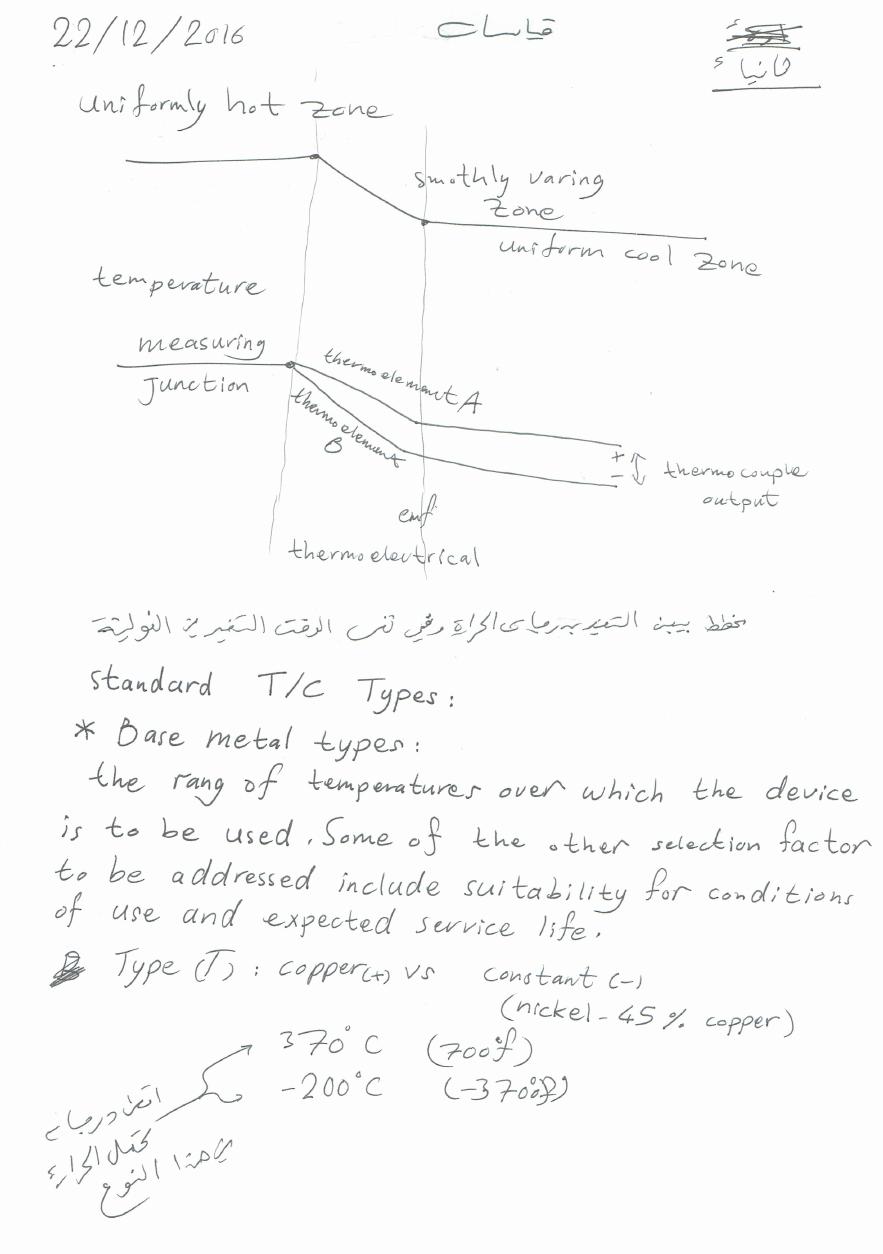 22/12/2016
قياسات
ثانياً
Uniformly hot zone
smothly varing
zone
uniform cool zone
temperature
measuring
Junction
thermo element A
thermo element
B
+
-
thermocouple
output
emf
thermo electrical
مخطط يبين الحرارة الوقت
standard T/C Types:
* Base metal types:
the rang of temperatures over which the device
is to be used. Some of the other selection factor
to be addressed include suitability for conditions
of use and expected service life.
Type (T): copper(+) vs constant (-)
(nickel - 45% copper)
370°C (700°f)
-200°C (-370°f)
درجات
تحمل الحرارة
لهذا النوع